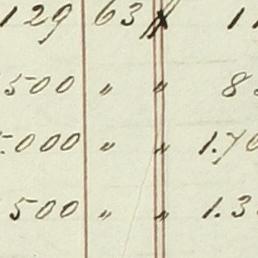 129 63 " 1
500 " " 8
000 " " 1.70
500 " " 1.3